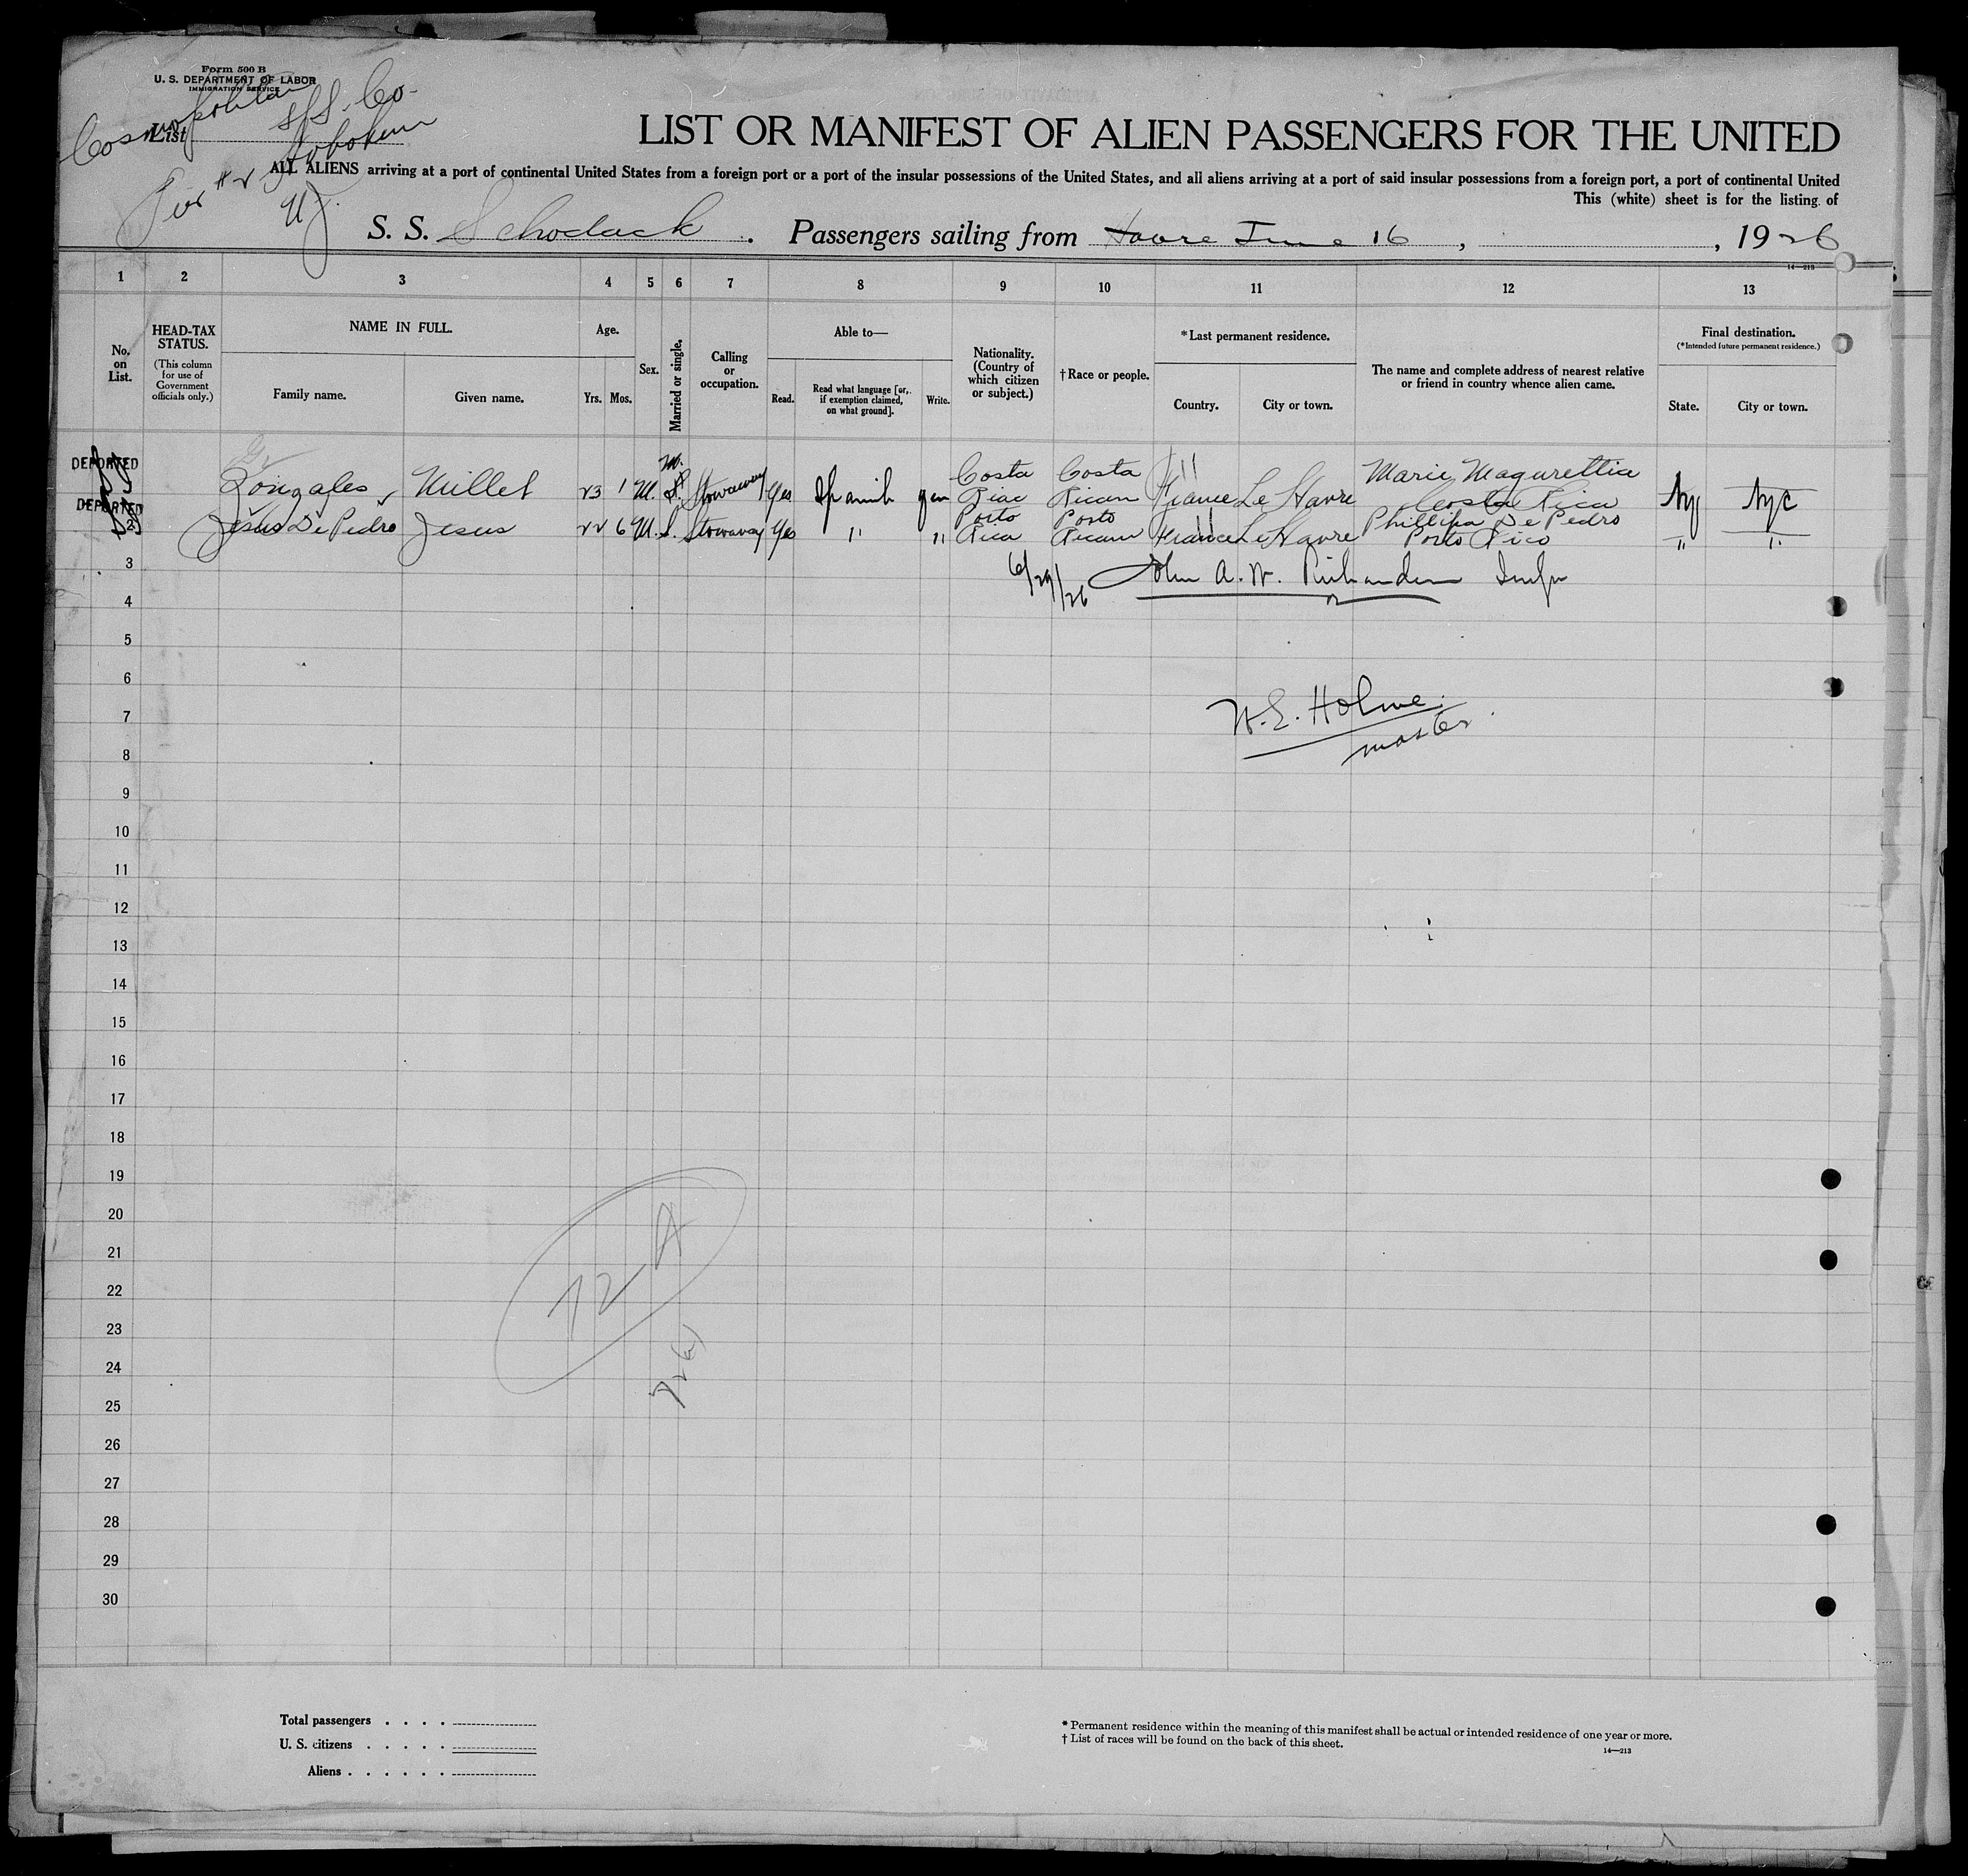 Form 500 B
U. S. DEPARTMENT OF LABOR
IMMIGRATION SERVICE
Cosmopolitan
S/S. Co.
List
Pier #2 Hoboken
NJ.
LIST OR MANIFEST OF ALIEN PASSENGERS FOR THE UNITED
ALL ALIENS arriving at a port of continental United States from a foreign port or a port of the insular possessions of the United States, and all aliens arriving at a port of said insular possessions from a foreign port, a port of continental United
This (white) sheet is for the listing of
S. S. Schodack . Passengers sailing from Havre June 16 , , 1926
14—213
1 2 3 4 5 6 7 8 9 10 11 12 13
No. on List.
HEAD-TAX STATUS.
(This column for use of Government officials only.)
NAME IN FULL.
Family name. Given name.
Age.
Yrs. Mos.
Sex.
Married or single.
Calling or occupation.
Able to—
Read. Read what language [or, if exemption claimed, on what ground]. Write.
Nationality. (Country of which citizen or subject.)
†Race or people.
*Last permanent residence.
Country. City or town.
The name and complete address of nearest relative or friend in country whence alien came.
Final destination.
(*Intended future permanent residence.)
State. City or town.
DEPORTED
Gonzales, Millet 23 1 M. S. M. Stowaway Yes Spanish yes Costa Riac Costa Rican France Le Havre Marie Magurettia Costa Rica NY NYC
DEPORTED
2 Jesus De Pedro Jesus 22 6 M. S. Stowaway Yes " " Porto Rica Porto Rican France Le Havre Phillipa De Pedro Porto Rico " "
3
6/29/26 John A. W. Richardson Inspr
4
5
6
W. E. Holme.
7
master
8
9
10
11
12
13
14
15
16
17
18
19
20
21
12 A
22
23
24
25
26
27
28
29
30
Total passengers . . . .
U. S. citizens . . . . .
Aliens . . . . . .
* Permanent residence within the meaning of this manifest shall be actual or intended residence of one year or more.
† List of races will be found on the back of this sheet.
14—213